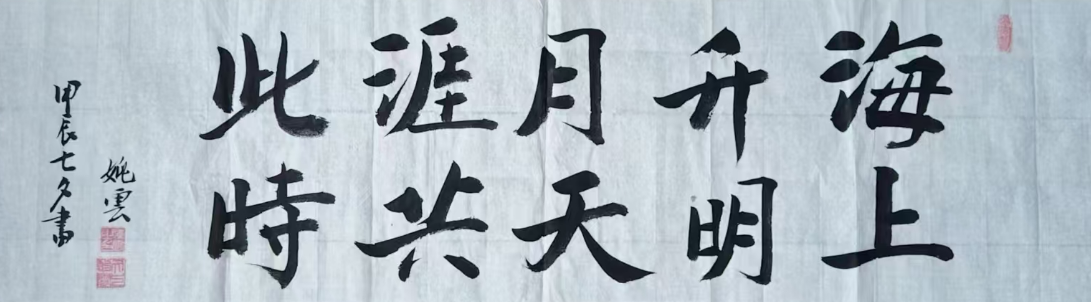 海上
升明
月天
涯共
此時
姚雲
甲辰七夕書